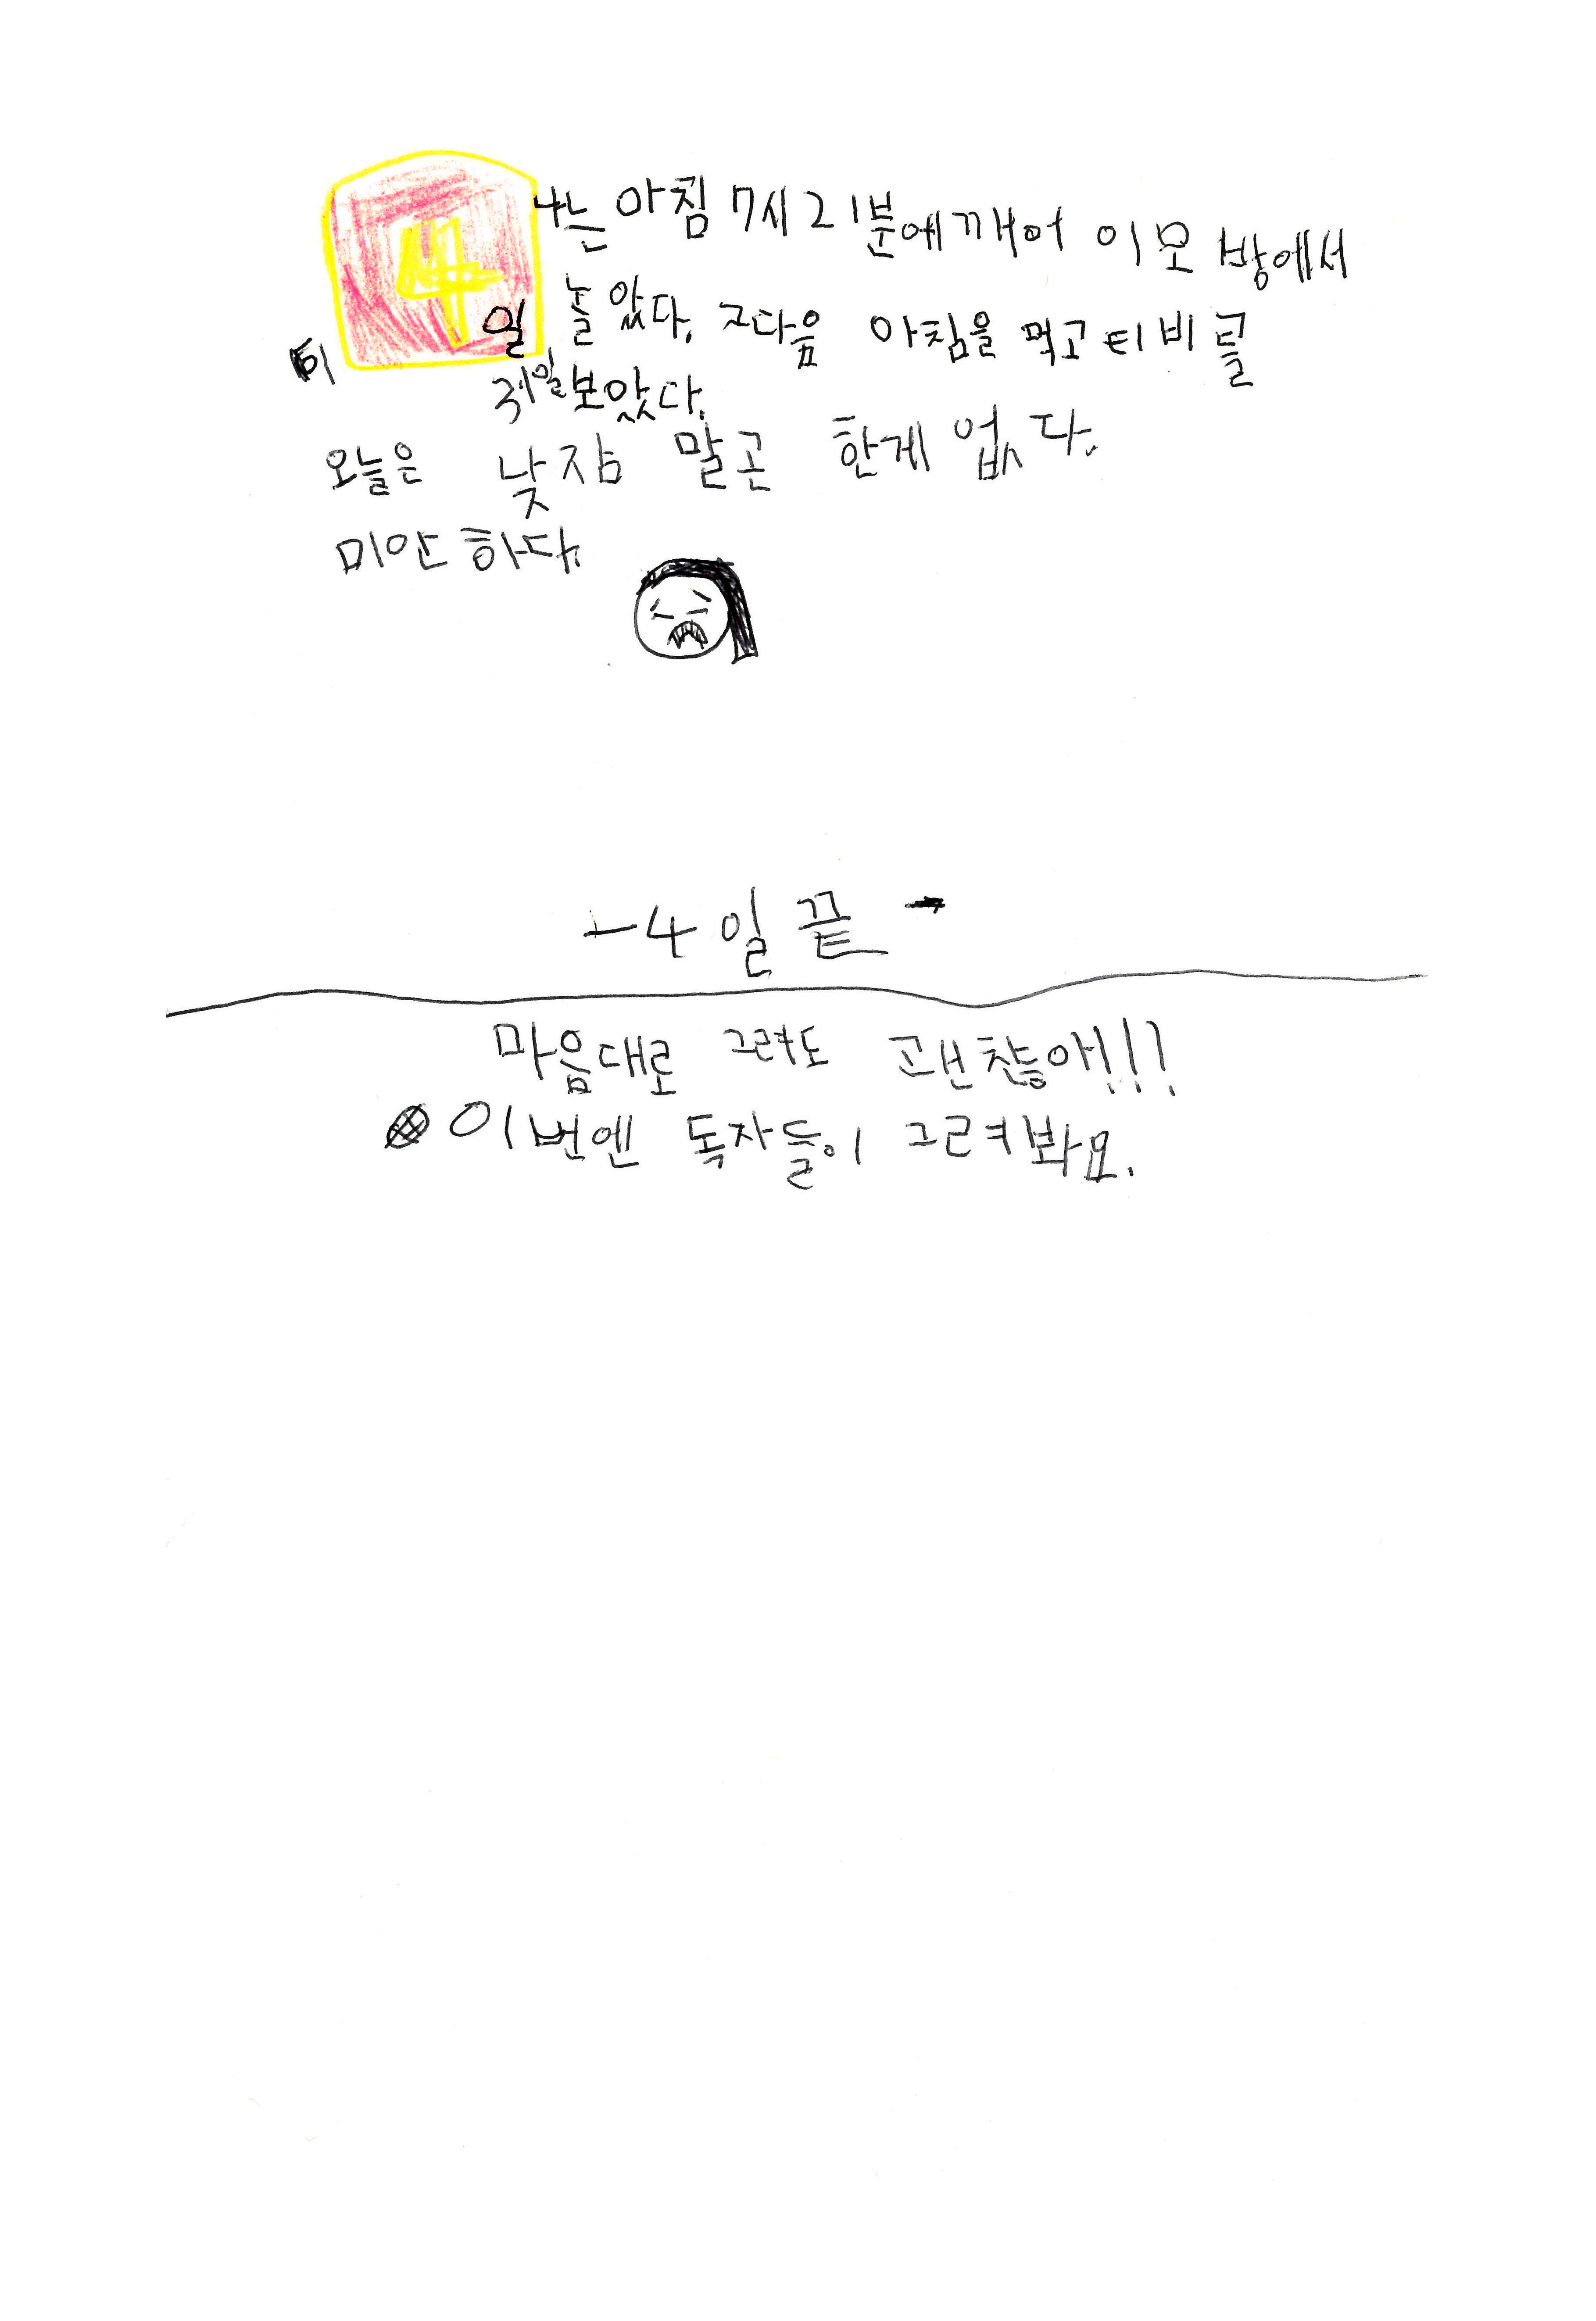 4일
나는 아침 7시 21분에 깨어 이모 방에서
놀았다. 그다음 아침을 먹고 티비를
보았다.
오늘은 낮잠 말곤 한게 없다.
미안하다.
-4일 끝-
마음대로 그려도 괜찮아!!!
이번엔 독자들이 그려봐요.